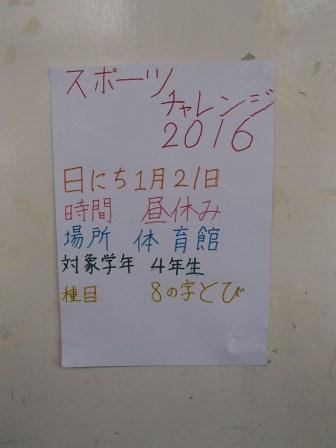 スポーツ
チャレンジ
2016
日にち 1月21日
時間 昼休み
場所 体育館
対象学年 4年生
種目 8の字とび